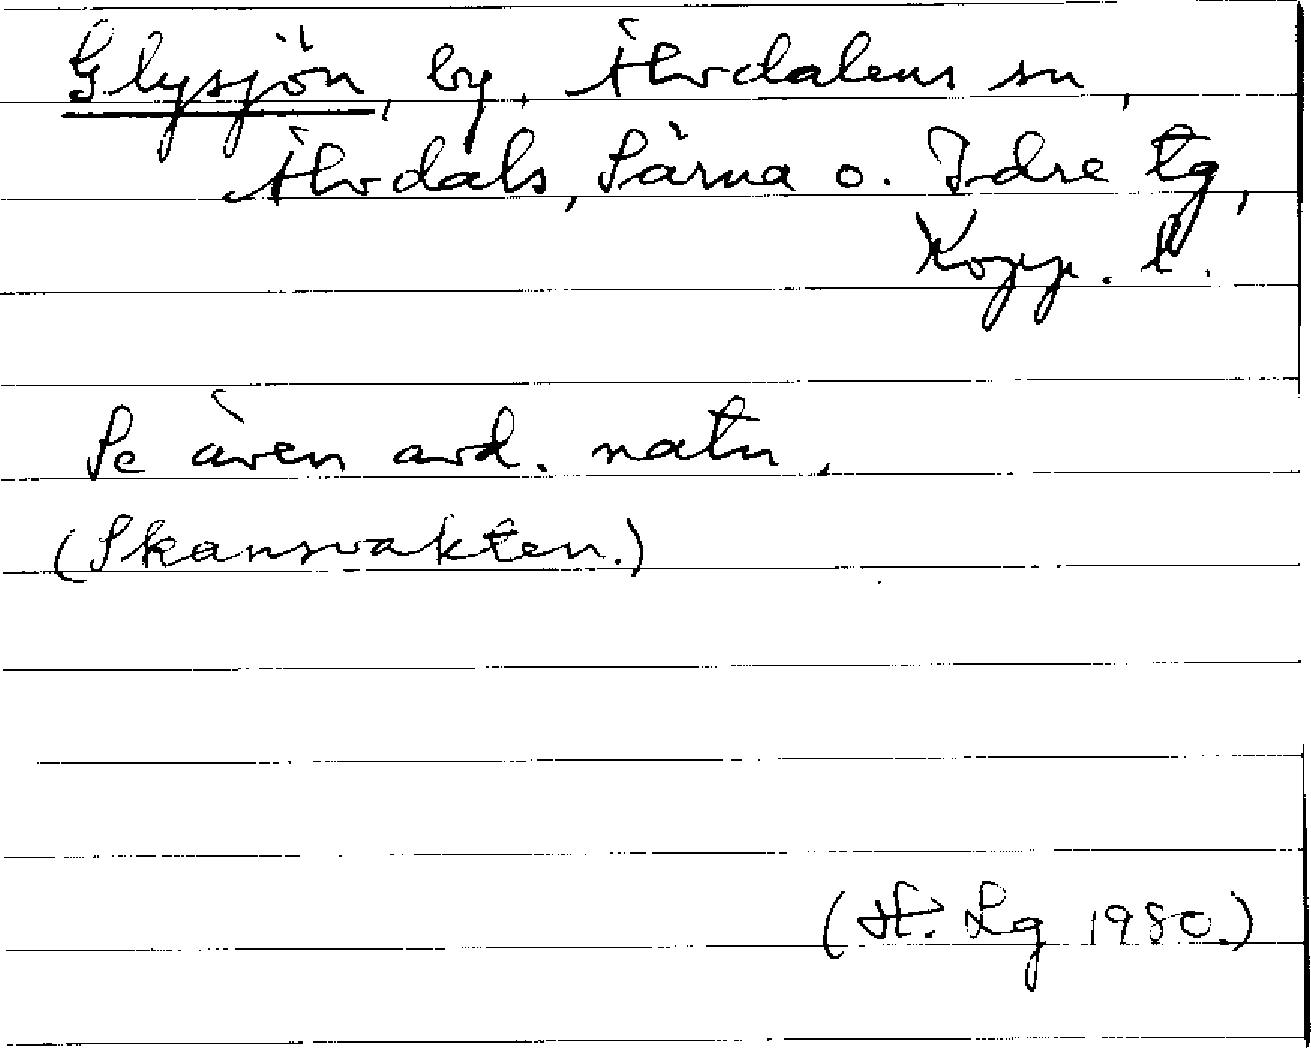 Glysjön, by, Älvdalens sn,
Älvdals, Särna o. Idre tg,
Kopp. l.
Se även avd. natn.
(Skansvakten.)
(H. Lg 1980.)